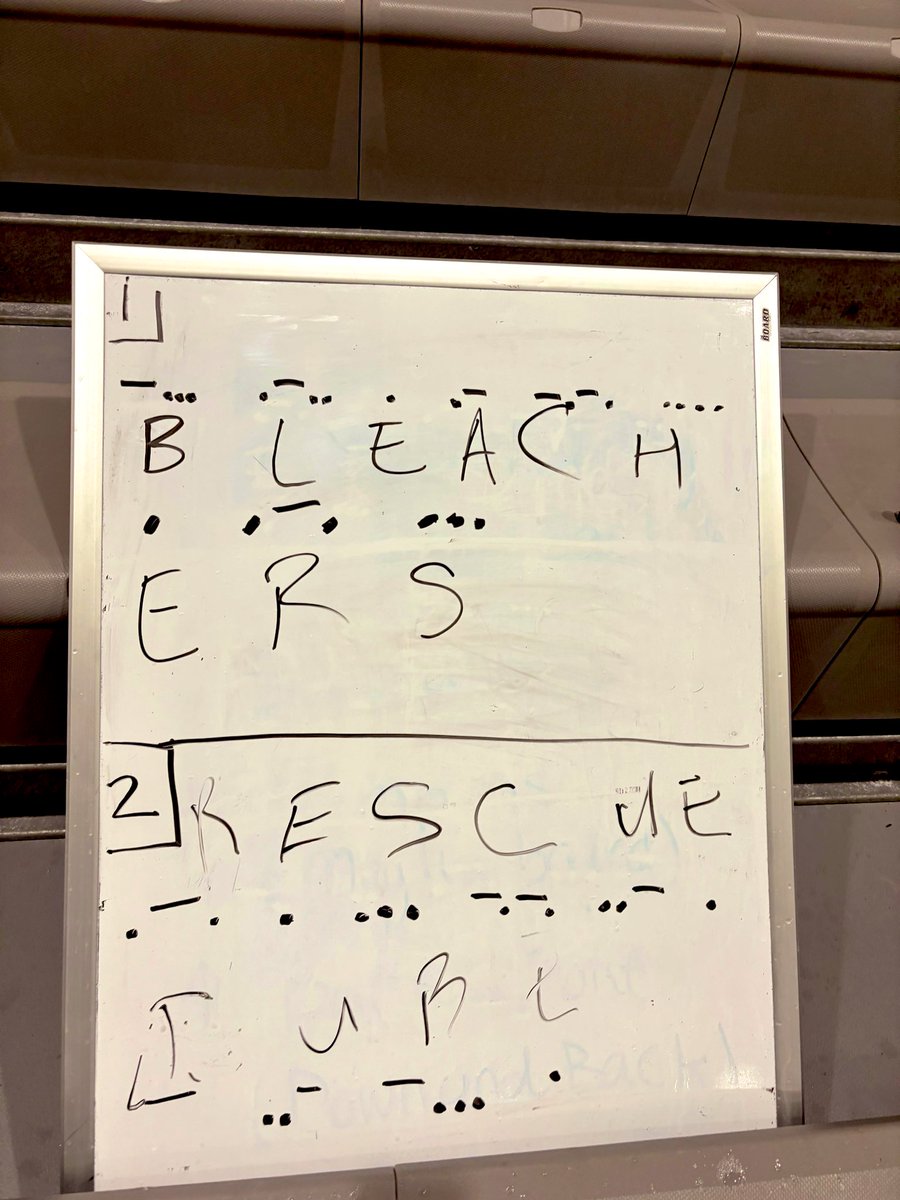 1
-... .-.. . .- -.-. ....
B L E A C H
. .-. ...
E R S
2
R E S C U E
.-. . ... -.-. ..- .
T U B E
- ..- -... .
BOARD